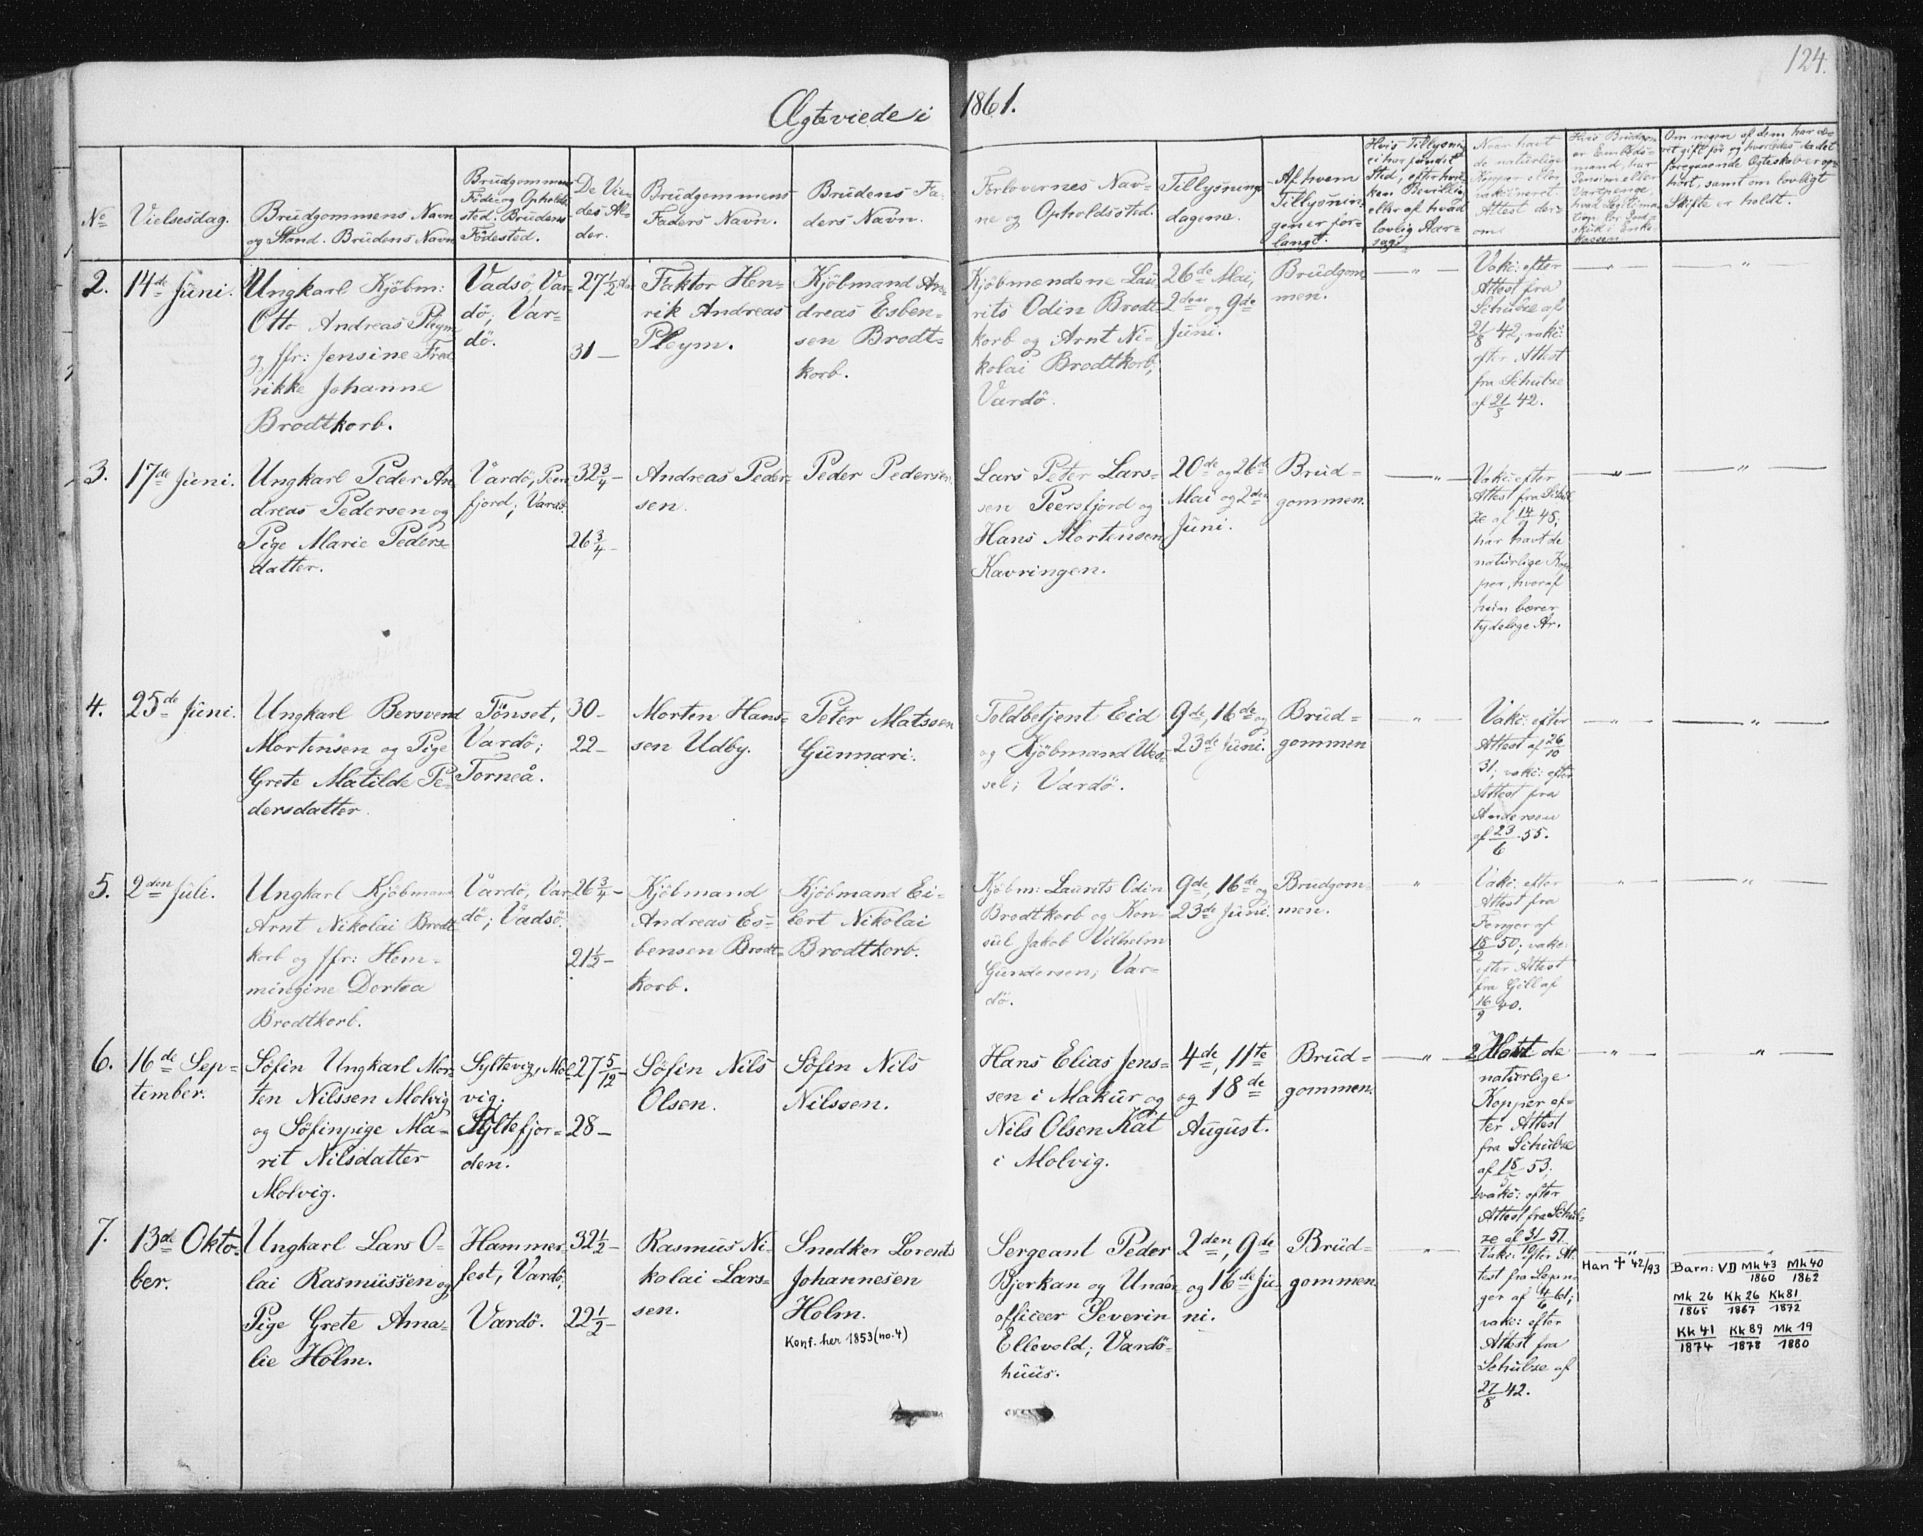 124.
Ægteviede i 1861.
No
Vielsesdag.
Brudgommens Navn
og Stand. Brudens Navn
Brudgommens
Føde- og Opholds-
sted. Brudens
Födested.
De Vie-
des Al-
der.
Brudgommens
Faders Navn.
Brudens Fa-
ders Navn.
Forlovernes Nav-
ne og Opholdssted.
Tillysnings-
dagene.
Af hvem
Tillysnin-
gen er for-
langt.
Hvis Tillysning
ei har fundet
Sted, efter hvil-
ken Bevilling
eller af hvad
lovlig Aar-
sag.
Naar havt
de naturlige
Kopper eller
vakcineret
Attest der-
om.
Hvis Brudgom.
er Embeds-
mand, har
Pension eller
Vartpenge,
hvad Legitima-
tion for Ind-
skud i Enke-
kassen.
Om nogen af dem har væ-
ret gift før og hvorledes da det
foregaaende Ægteskab er op-
hört, samt om lovligt
Skifte er holdt.
2.
14de Juni.
Ungkarl Kjöbm:
Otto Andreas Pleym
og Jfr: Jensine Fred
rikke Johanne
Brodtkorb.
Vadsö, Var-
dö; Var-
dö.
27 1/2
31 —
Faktor Hen-
rik Andreas
Pleym.
Kjöbmand An-
dreas Esben-
sen Brodt-
korb.
Kjöbmændene Lau
rits Odin Brodt-
korb og Arnt Ni-
kolai Brodtkorb;
Vardö.
26de Mai,
2den og 9de
Juni.
Brudgom-
men.
— " —
Vakc: efter
Attest fra
Schulze af
21/8 42; vakc:
efter Attest
fra Schulze
af 21/8 42.
— " —
— " —
3.
17de Juni.
Ungkarl Peder An-
dreas Pedersen og
Pige Marie Peders-
datter.
Vardö, Peer
fjord; Vardö.
32 3/4 —
26 3/4 —
Andreas Peder-
sen.
Peder Pedersen
Lars Peter Lars-
sen Peersfjord og
Hans Mortensen
Kavringen.
20de og 26de
Mai og 2den
Juni.
Brud-
gommen.
— " —
Vakc: efter
Attest fra Schul
ze af 14/9 48.
har havt de
naturlige Kop
per, hvoraf
hun bærer
tydelige Ar.
— " —
— " —
4.
25de Juni.
Ungkarl Bersvend
Mortensen og Pige
Grete Matilde Pe-
dersdatter.
Tönset,
Vardö;
Torneå.
30 —
22 —
Morten Hans-
sen Udby.
Peter Matssen
Gunnari.
Toldbetjent Eid
og Kjöbmand Wes-
sel; Vardö.
9de, 16de og
23de Juni.
Brud-
gommen
— " —
Vakc: efter
Attest af 26/10
31; vakc: efter
Attest fra
Anderson
af 23/6 55.
— " —
— " —
5.
2den Juli.
Ungkarl Kjöbmand
Arnt Nikolai Brodt
korb og Jfr: Hem-
mingine Dortea
Brodtkorb.
Vardö, Var
dö; Vadsö.
26 3/4 —
21 1/2 —
Kjöbmand
Andreas Es-
bensen Brodt-
korb.
Kjöbmand Ei-
lert Nikolai
Brodtkorb.
Kjöbm: Laurits Odin
Brodtkorb og Kon-
sul Jakob Vilhelm
Gundersen; Var-
dö.
9de, 16de og
23de Juni.
Brudgom-
men.
"
Vakc: efter
Attest fra
af
50; vakc:
efter Attest
fra Gjöll af
16/9 40.
— " —
— " —
6.
16de Sep-
tember.
Söfin Ungkarl Mor-
ten Nilssen Molvig
og Söfinpige Ma-
rit Nilsdatter
Molvig.
Syltevig, Mol-
vig;
Syltefjor-
den.
27 5/12 —
28 —
Söfin Nils
Olsen.
Söfin Nils
Nilssen.
Hans Elias Jens-
sen i Makur og
Nils Olsen Kåt
i Molvig.
4de, 11te
og 18de
August.
Brud-
gommen.
— " —
2 Havt de
naturlige
Kopper ef-
ter Attest
fra Schulze
af 53.
1 vakc: efter
Attest fra Schul-
ze af 31/10 57.
— " —
— " —
7.
13de Okto-
ber.
Ungkarl Lars O-
lai Rasmussen og
Pige Grete Ama-
lie Holm.
Hammer-
fest, Vardö;
Vardö.
32 1/2 —
22 1/2 —
Rasmus Ni-
kolai Lars-
sen.
Snedker Lorents
Johannesen
Holm.
Konf. her 1853 (no. 4)
Sergeant Peder
Bjerkan og Under-
officeer Severin
Ellevold; Vardö-
huus.
2den, 9de
og 16de Ju-
ni.
Brud-
gommen.
"
Vakc: efter At-
test fra
af 4/6 61;
vakc: efter
Attest fra
Schulze af
27/8 42.
— " —
Han † 42/93
— " —
Barn: VD Mk 43/1860 Mk 40/1862
Mk 26/1865 Kk 26/1867 Kk 81/1872
Kk 41/1874 Kk 89/1878 Mk 19/1880